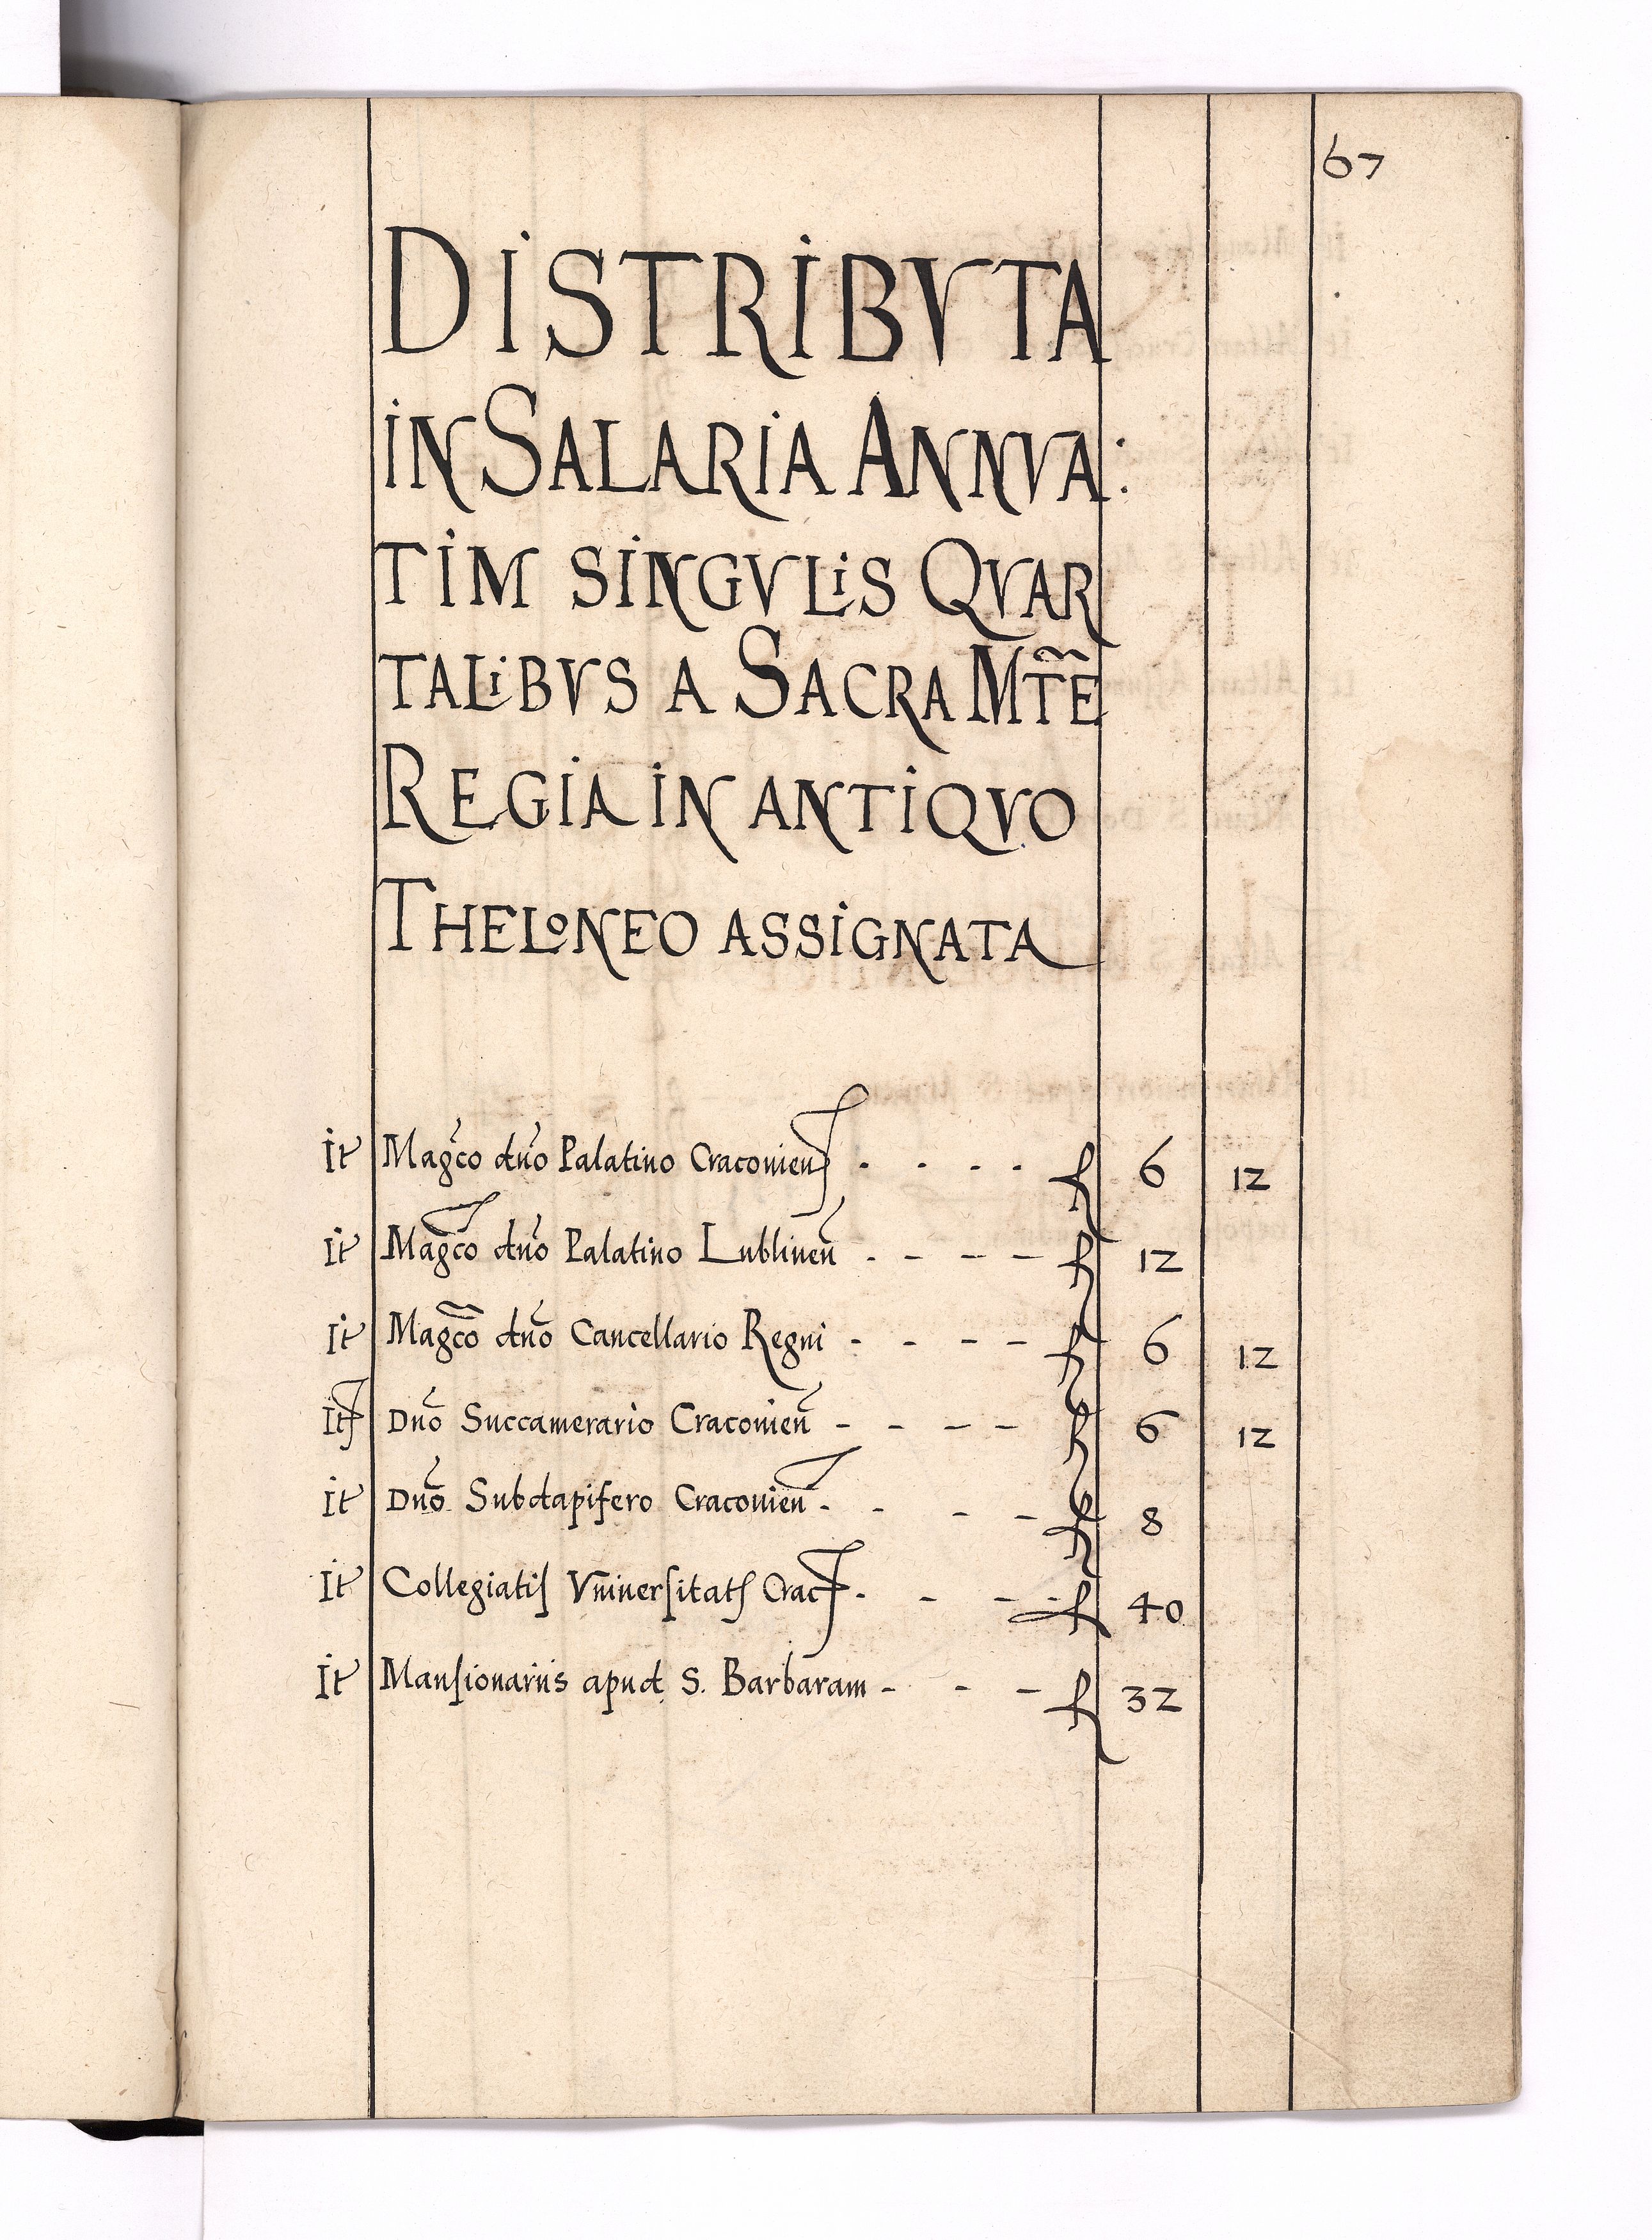 67
DISTRIBVTA
IN SALARIA ANNVA:
TIM SINGVLIS QVAR
TALIBVS A SACRA MTE
REGIA IN ANTIQVO
THELONEO ASSIGNATA
It Magco dno Palatino Cracouien - - - - fl 6 12
It Magco dno Palatino Lublinen - - - - fl 12
It Magco dno Cancellario Regni - - - - fl 6 12
It Dno Succamerario Cracouien - - - - fl 6 12
It Dno Subdapifero Cracouien - - - - fl 8
It Collegiatis Vniuersitatis Crac - - - fl 40
It Mansionariis apud S. Barbaram - - - fl 32